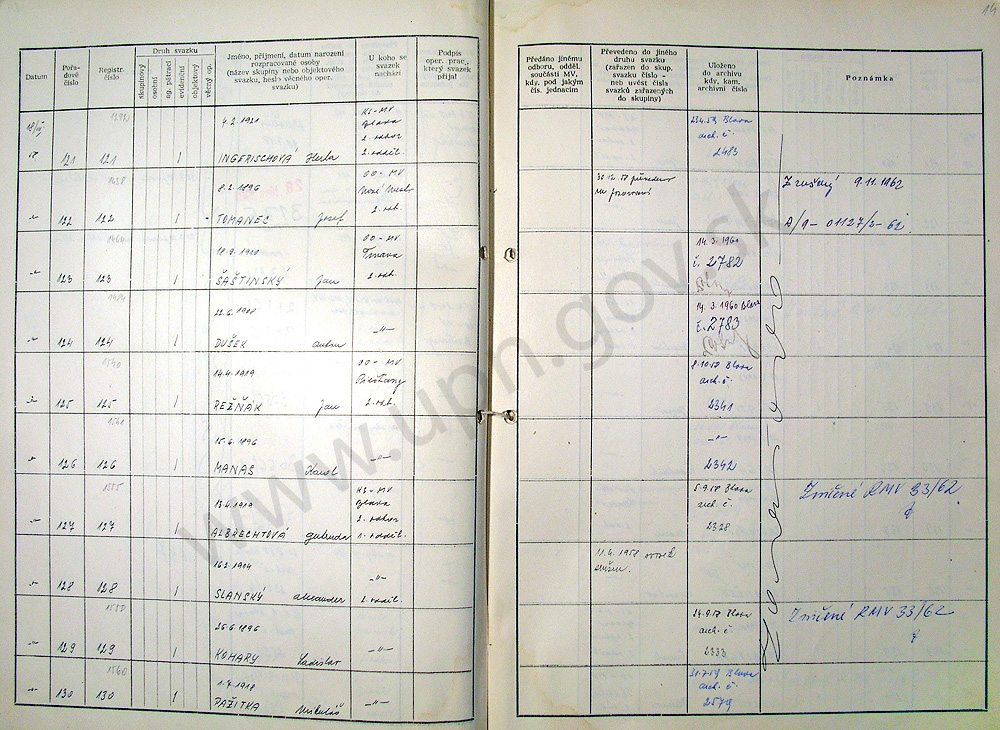 14
Datum
Pořa-
dové
číslo
Registr.
číslo
Druh svazku
skupinový
osobní
ag. pátrací
evidenční
objektový
věcný op.
Jméno, příjmení, datum narození
rozpracované osoby
(název skupiny nebo objektového
svazku, heslo věcného oper.
svazku)
U koho se
svazek
nachází
Podpis
oper. prac.,
který svazek
přijal
Předáno jinému
odboru, odděl.
součásti MV,
kdy, pod jakým
čís. jednacím
Převedeno do jiného
druhu svazku
(zařazen do skup.
svazku číslo -
neb uvést čísla
svazků zařazených
do skupiny)
Uloženo
do archivu
kdy, kam,
archivní číslo
Poznámka
4.2. 1921
KS-MV
Blava
2. odbor
2. odděl.
121 121 1 INGERISCHOVÁ
23.4.59 Blava
arch. č.
2483
1458
8.2. 1896
OO-MV
122 122 1 TOMANEC Jozef
Zrušený 9.11.1962
A/9-01127/2-62
1460
OO-MV
Trnava
123 123 1 ŠAŠTINSKÝ Jan
14. 3. 1960
č. 2782
1484
22.6. 1908
124 124 1 DUŠEK
-"-
14. 3. 1960 Blava
č. 2783
1540
14.4. 1919
OO-MV
Piešťany
125 125 1 REŽŇÁK Jan
8.10.58 Blava
arch. č.
2341
1541
15.6. 1896
126 126 1 MANAS Karol
-"-
-"-
2342
1555
13.4. 1919
KS-MV
Blava
2. odbor
1. odděl.
127 127 1 ALBRECHTOVÁ
5.9.58 Blava
arch. č.
2328
Zničené RMV 33/62
128 128 1 SLANSKÝ Alexander
-"-
2. odděl.
11.4. 1958
1550
26.6. 1896
129 129 1 KOHARY Ladislav
-"-
24.9.58 Blava
arch. č.
2333
Zničené RMV 33/62
1560
1.4. 1918
130 130 1 PAŽITKA Mikuláš
-"-
31.7.59 Blava
arch. č.
2579
www.upn.gov.sk